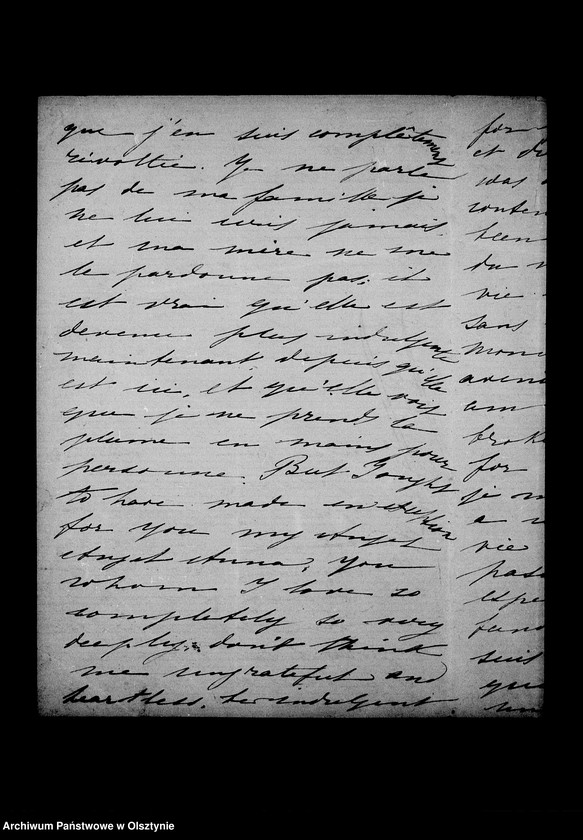 que j'en suis complêtement
révoltée. Je ne parle
pas de ma famille je
ne lui écris jamais
et ma mère ne me
le pardonne pas, il
est vrai qu'elle est
devenue plus indulgente
maintenant depuis qu'elle
est ici, et qu'elle voit
que je ne prends la
plume en mains pour
personne. But I ought
to have made an
for You my Angel
Angel Anna, You
whom I love so
completely so very
deeply; don't think
me ungrateful and
heartless, be indulgent
for
et
was
conten
been
du
vie
sans
mon
aveni
am
brok
for
je
a
vie
pass
espe
fun
suis
que
Archiwum Państwowe w Olsztynie